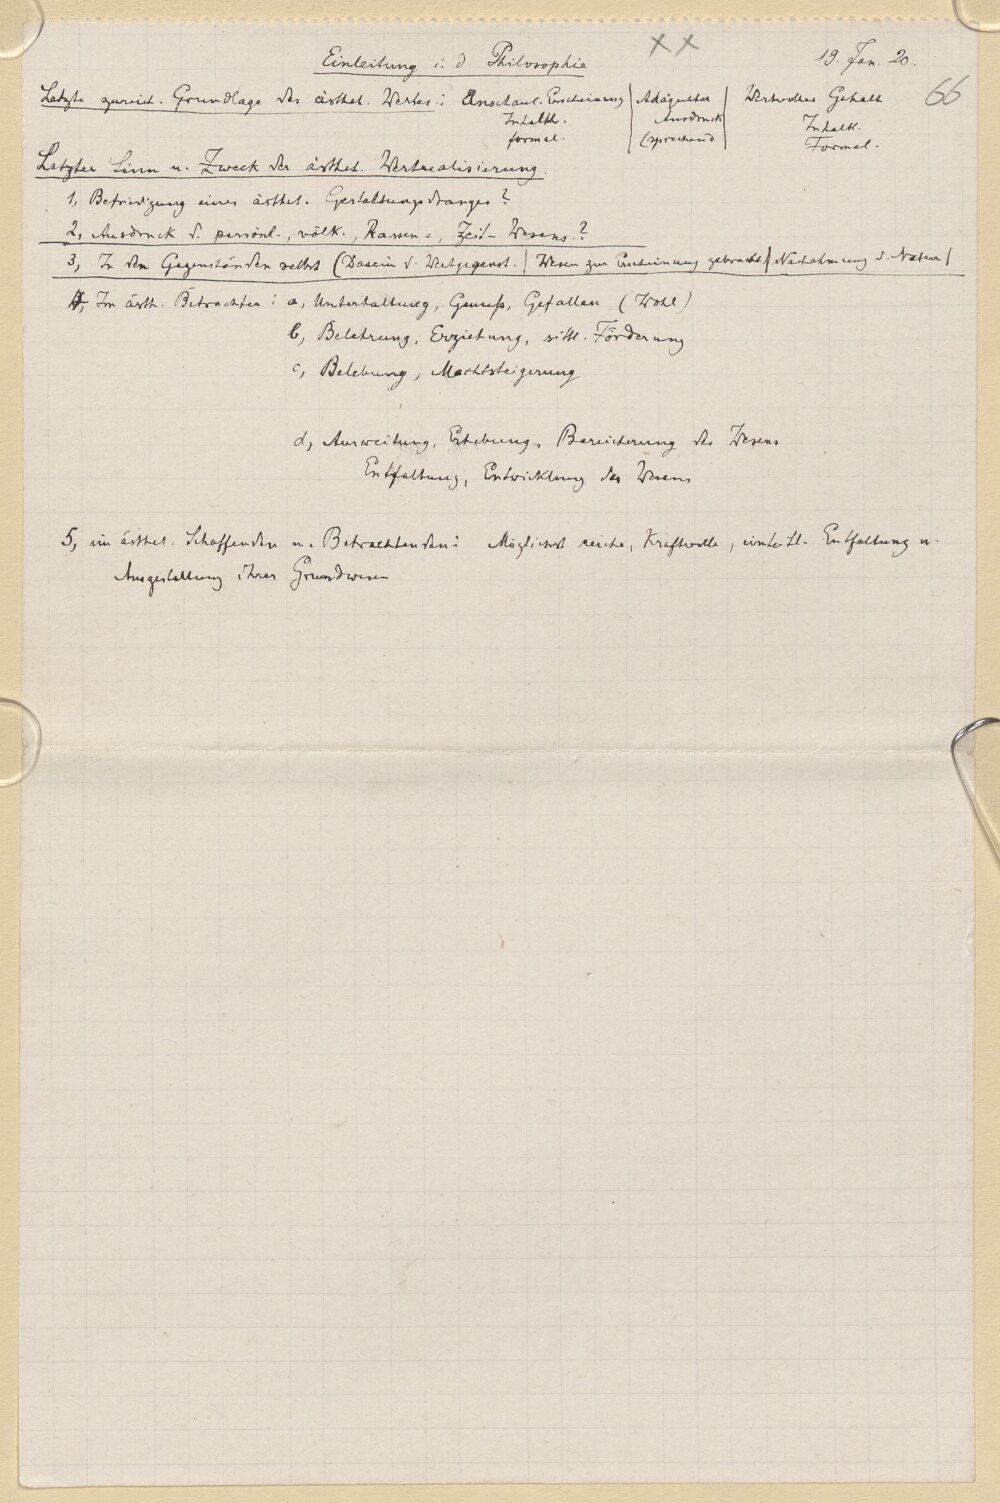 Einleitung i. d. Philosophie
× ×
19. Jan. 20.
66
Letzte zureich. Grundlage des ästhet. Wertes: Anschaul. Erscheinung | Adäquater | Wertvoller Gehalt
Inhaltl. | Ausdruck | Inhalt.
formal. | (sprechend | Formal.
Letzter Sinn u. Zweck der ästhet. Wertrealisierung.
1, Befriedigung eines ästhet. Gestaltungsdranges?
2, Ausdruck d. persönl.-, völk.-, Rassen-, Zeit-Wesens?
3, In den Gegenständen selbst (Dasein v. Wertgegenst. | Wesen zur Erscheinung gebracht | Nachahmung d. Natur |
4, Im ästh. Betrachter: a, Unterhaltung, Genuß, Gefallen (Wohl)
b, Belehrung, Erziehung, sittl. Förderung
c, Belebung, Machtsteigerung
d, Ausweitung, Erhebung, Bereicherung des Wesens
Entfaltung, Entwicklung des Wesens
5, im ästhet. Schaffenden u. Betrachtenden: Möglichst reiche, kraftvolle, einheitl. Entfaltung u.
Ausgestaltung ihres Grundwesen